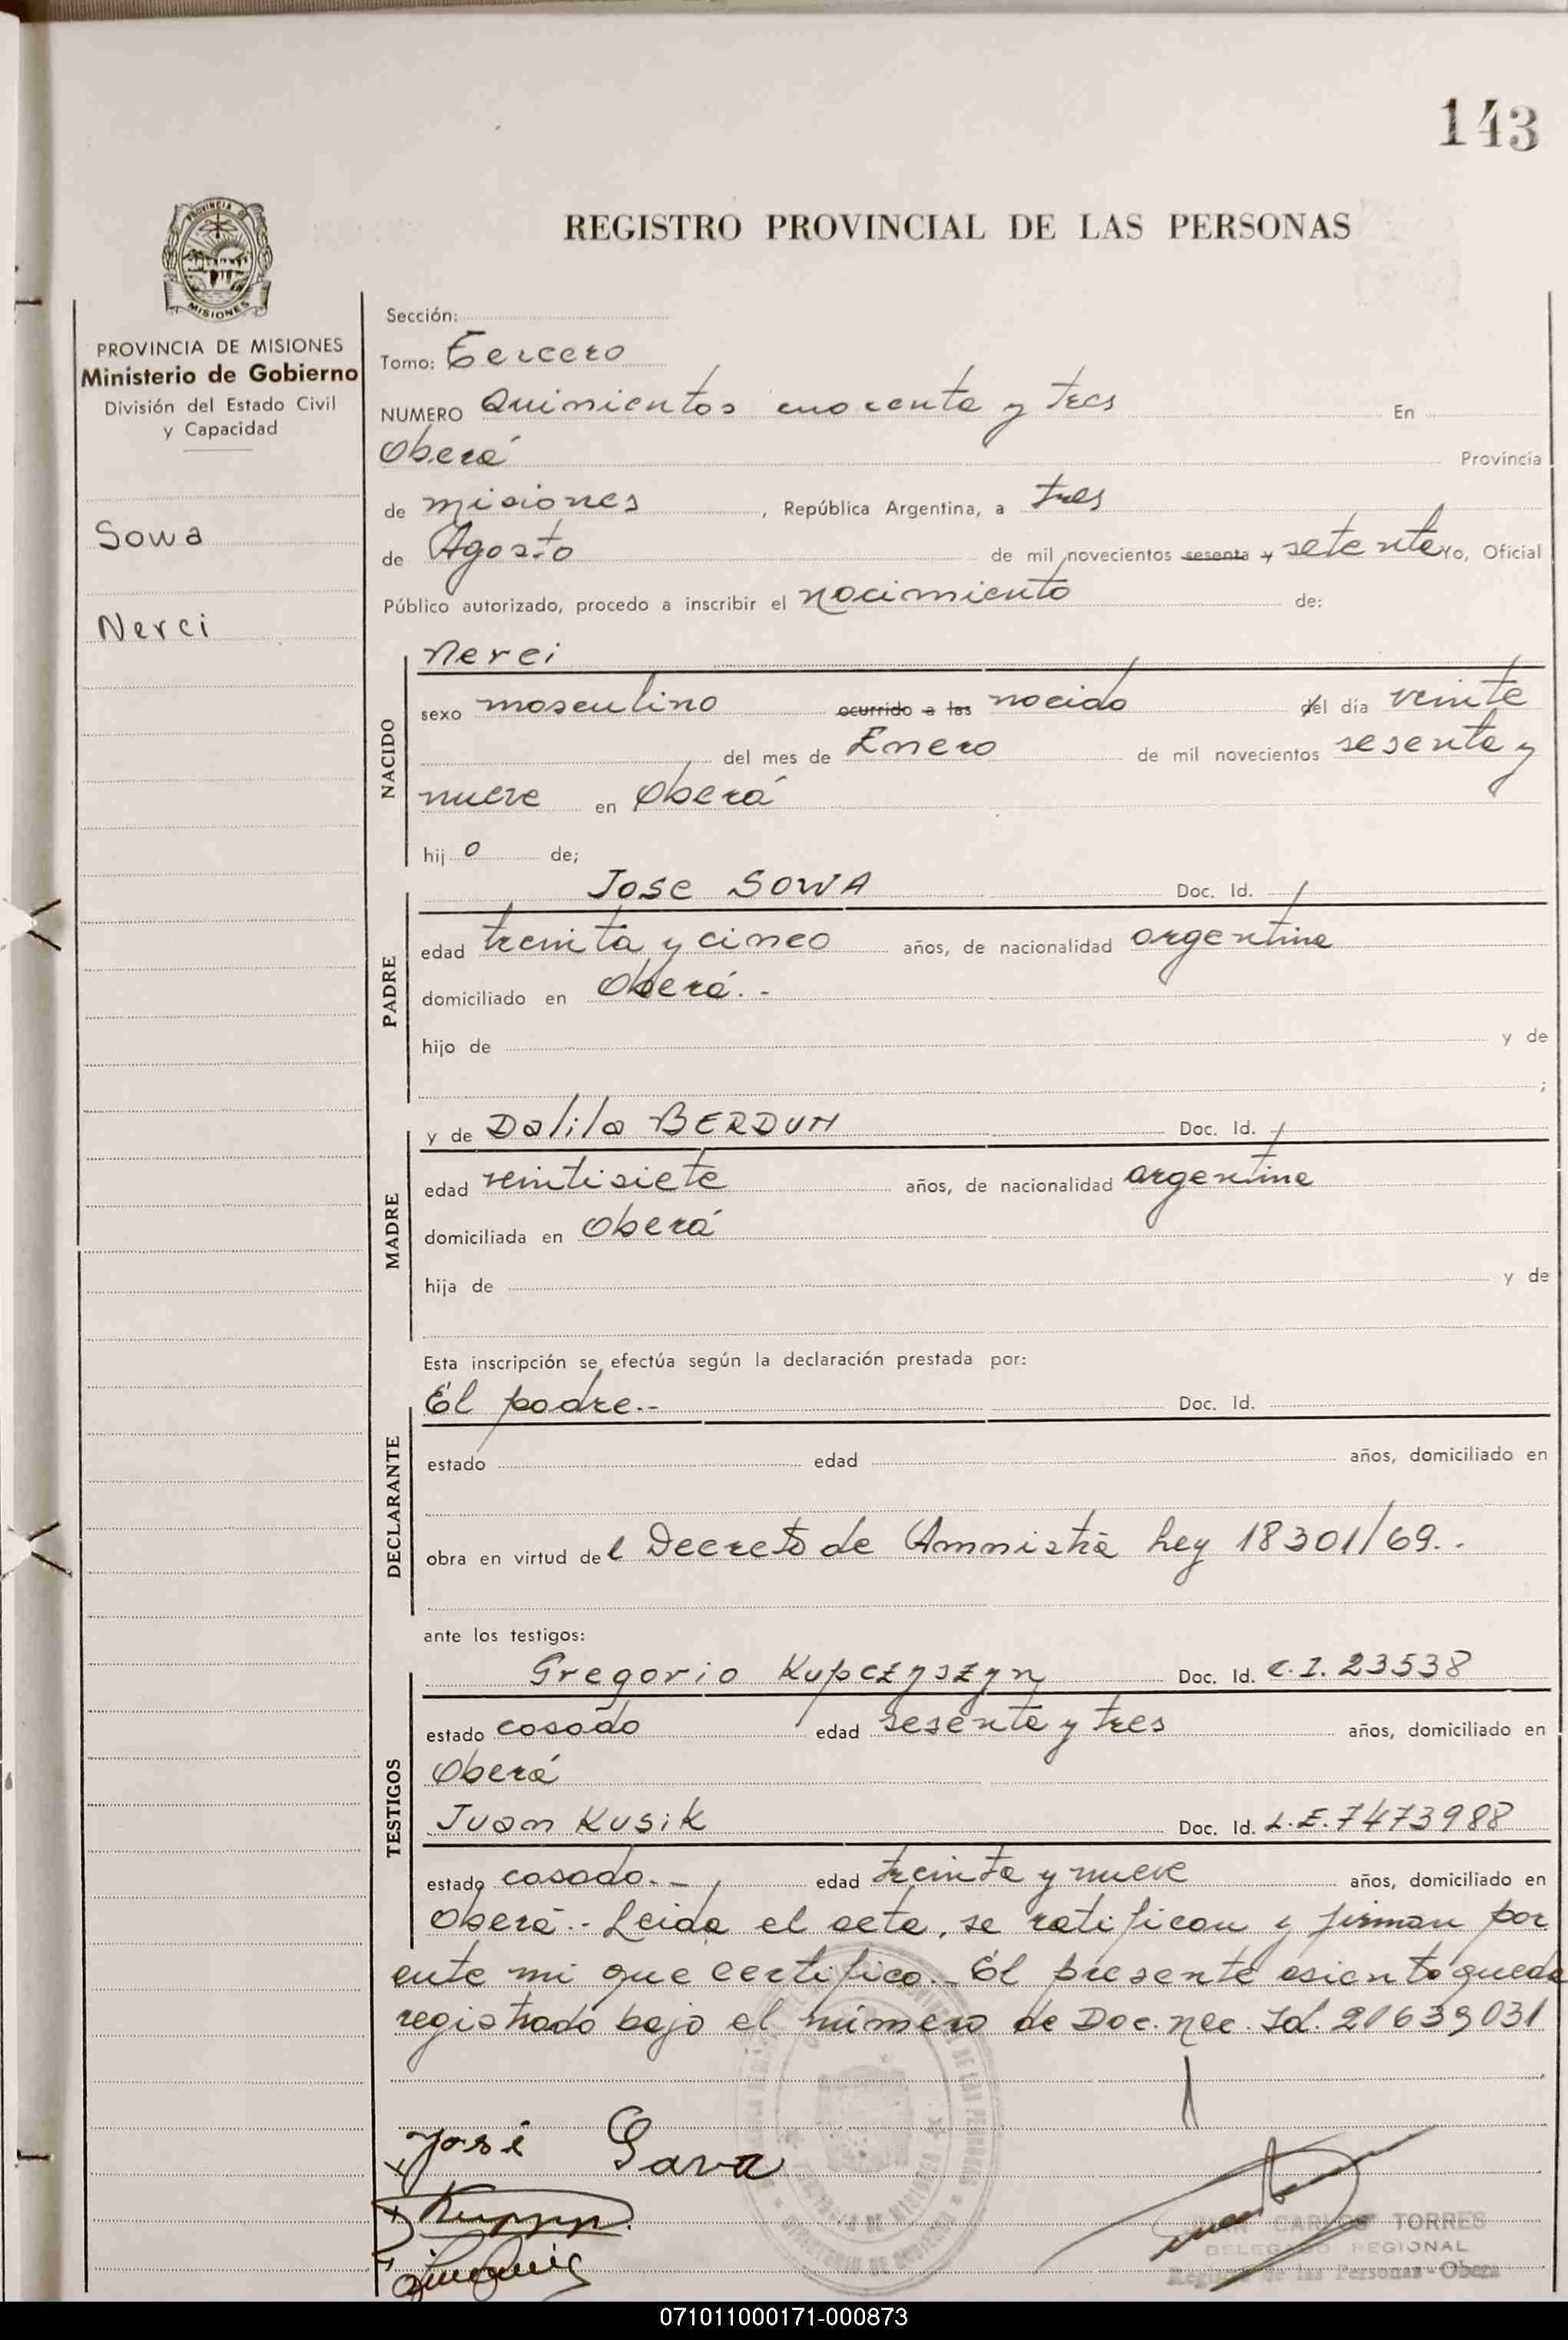 143
PROVINCIA DE
MISIONES
REGISTRO PROVINCIAL DE LAS PERSONAS
PROVINCIA DE MISIONES
Ministerio de Gobierno
División del Estado Civil
y Capacidad
Sowa
Nerci
Sección:
Tomo: Tercero
NUMERO Quinientos cuarenta y tres En
Oberá Provincia
de Misiones, República Argentina, a tres
de Agosto de mil novecientos sesenta y setenta yo, Oficial
Público autorizado, procedo a inscribir el nacimiento de:
NACIDO
Nerci
sexo masculino ocurrido a las nacido del día veinte
del mes de Enero de mil novecientos sesenta y
nueve en Oberá
hijo de;
PADRE
Jose SOWA Doc. Id.
edad treinta y cinco años, de nacionalidad argentina
domiciliado en Oberá.-
hijo de y de
;
MADRE
y de Dalila BERDUN Doc. Id.
edad veintisiete años, de nacionalidad argentina
domiciliada en Oberá
hija de y de
Esta inscripción se efectúa según la declaración prestada por:
DECLARANTE
El padre.- Doc. Id.
estado edad años, domiciliado en
obra en virtud del Decreto de Amnistia Ley 18301/69.-
ante los testigos:
TESTIGOS
Gregorio Kupczyszyn Doc. Id. C.I. 23538
estado casado edad sesenta y tres años, domiciliado en
Oberá
Juan Kusik Doc. Id. L.E. 7473988
estado casado.- edad treinta y nueve años, domiciliado en
Oberá.- Leida el acta, se ratifican y firman por
ante mi que certifico.- El presente asiento queda
registrado bajo el número de Doc. Nac. Id. 20639031
José Sava
JUAN CARLOS TORRES
DELEGADO REGIONAL
Registro de las Personas - Oberá
071011000171-000873